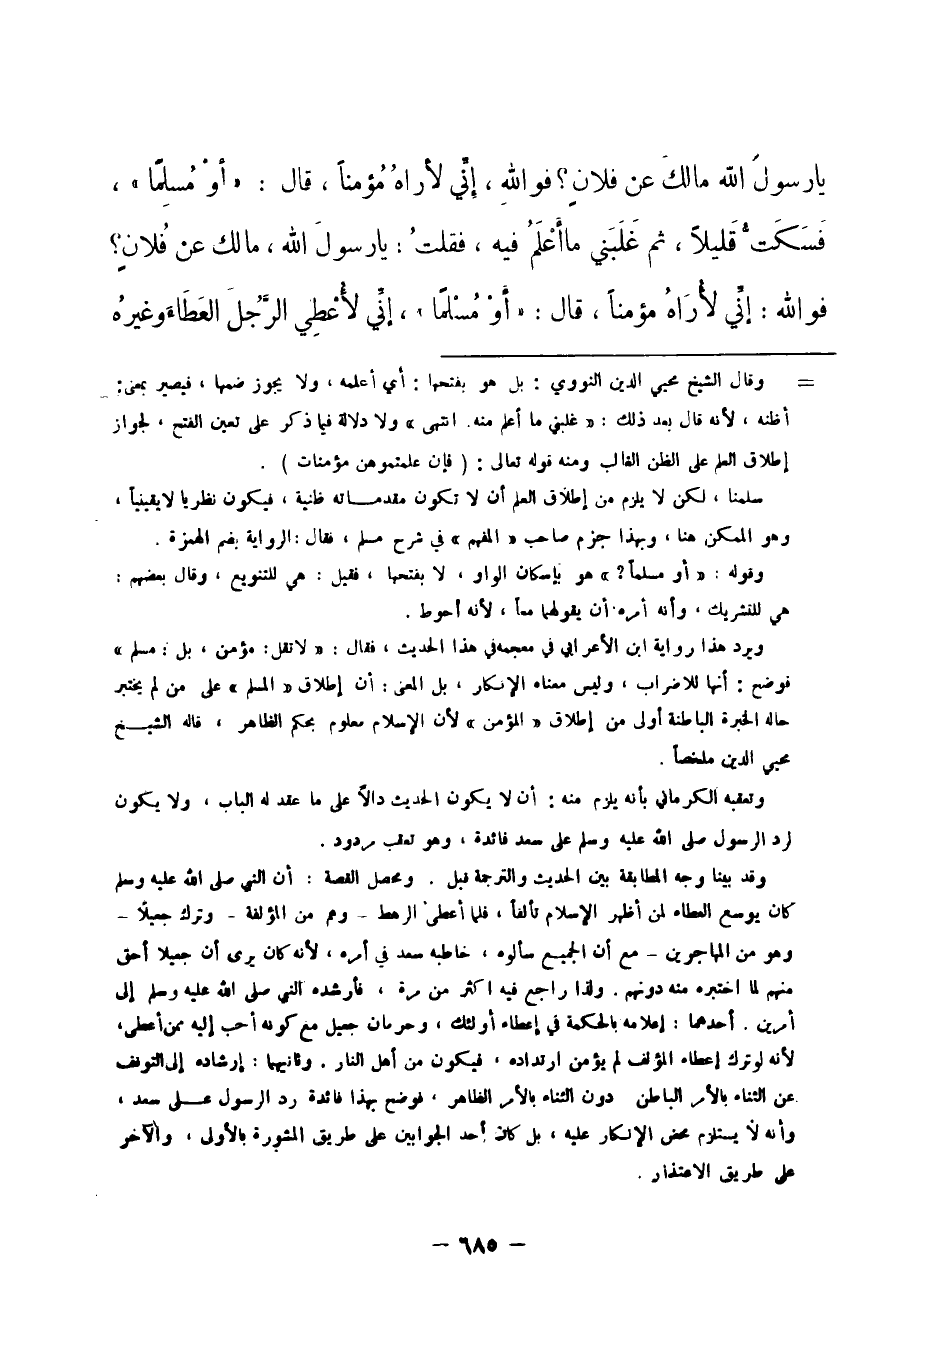 يا رسولَ الله مالكَ عن فلانٍ؟ فواللهِ ، إنّي لأراهُ مُؤمناً ، قال : « أوْ مُسلِمًا » ،
فَسَكَتُّ قَليلاً ، ثم غَلَبَني ما أَعْلَمُ فيه ، فقلتُ : يا رسولَ الله ، مالك عن فُلانٍ؟
فوالله : إنِّي لأُرَاهُ مؤمناً ، قال : « أَوْ مُسْلمًا » ، إنِّي لأُعْطِي الرَّجُلَ العَطَاءَ وغيرهُ
= وقال الشيخ محيي الدين النووي : بل هو بفتحها : أي أعلمه ، ولا يجوز ضمها ، فيصير بمعنى :
أظنه ، لأنه قال بعد ذلك : « غلبني ما أعلم منه . انتهى » ولا دلالة فيما ذكر على تعين الفتح ، لجواز
إطلاق العلم على الظن الغالب ومنه قوله تعالى : ( فإن علمتموهن مؤمنات ) .
سلمنا ، لكن لا يلزم من إطلاق العلم أن لا تكون مقدمـــاته ظنية ، فيكون نظريا لا يقينياً ،
وهو الممكن هنا ، وبهذا جزم صاحب « المفهم » في شرح مسلم ، فقال : الرواية بضم الهمزة .
وقوله : « أو مسلماً؟ » هو بإسكان الواو ، لا بفتحها ، فقيل : هي للتنويع ، وقال بعضهم :
هي للتشريك ، وأنه أمره أن يقولهما معاً ، لأنه أحوط .
ويرد هذا رواية ابن الأعرابي في معجمه في هذا الحديث ، فقال : « لا تقل : مؤمن ، بل : مسلم »
فوضح : أنها للاضراب ، وليس معناه الإنكار ، بل المعنى : أن إطلاق « المسلم » على من لم يختبر
حاله الخبرة الباطنة أولى من إطلاق « المؤمن » لأن الإسلام معلوم بحكم الظاهر ، قاله الشيـــخ
محيي الدين ملخصاً .
وتعقبه الكرماني بأنه يلزم منه : أن لا يكون الحديث دالاً على ما عقد له الباب ، ولا يكون
لرد الرسول صلى الله عليه وسلم على سعد فائدة ، وهو تعقب مردود .
وقد بينا وجه المطابقة بين الحديث والترجمة قبل . ومحصل القصة : أن النبي صلى الله عليه وسلم
كان يوسع العطاء لمن أظهر الإسلام تألفاً ، فلما أعطى الرهط – وهم من المؤلفة – وترك جعيلاً –
وهو من المهاجرين – مع أن الجميع سألوه ، خاطبه سعد في أمره ، لأنه كان يرى أن جعيلا أحق
منهم لما اختبره منه دونهم . ولذا راجع فيه اكثر من مرة ، فأرشده النبي صلى الله عليه وسلم إلى
أمرين . أحدهما : إعلامه بالحكمة في إعطاء أولئك ، وحرمان جعيل مع كونه أحب إليه ممن أعطى ،
لأنه لو ترك إعطاء المؤلف لم يؤمن ارتداده ، فيكون من أهل النار . وثانيها : إرشاده إلى التوقف
عن الثناء بالأمر الباطن دون الثناء بالأمر الظاهر ، فوضح بهذا فائدة رد الرسول عـــلى سعد ،
وأنه لا يستلزم محض الإنكار عليه ، بل كان أحد الجوابين على طريق المشورة بالأولى ، والآخر
على طريق الاعتذار .
– ٦٨٥ –